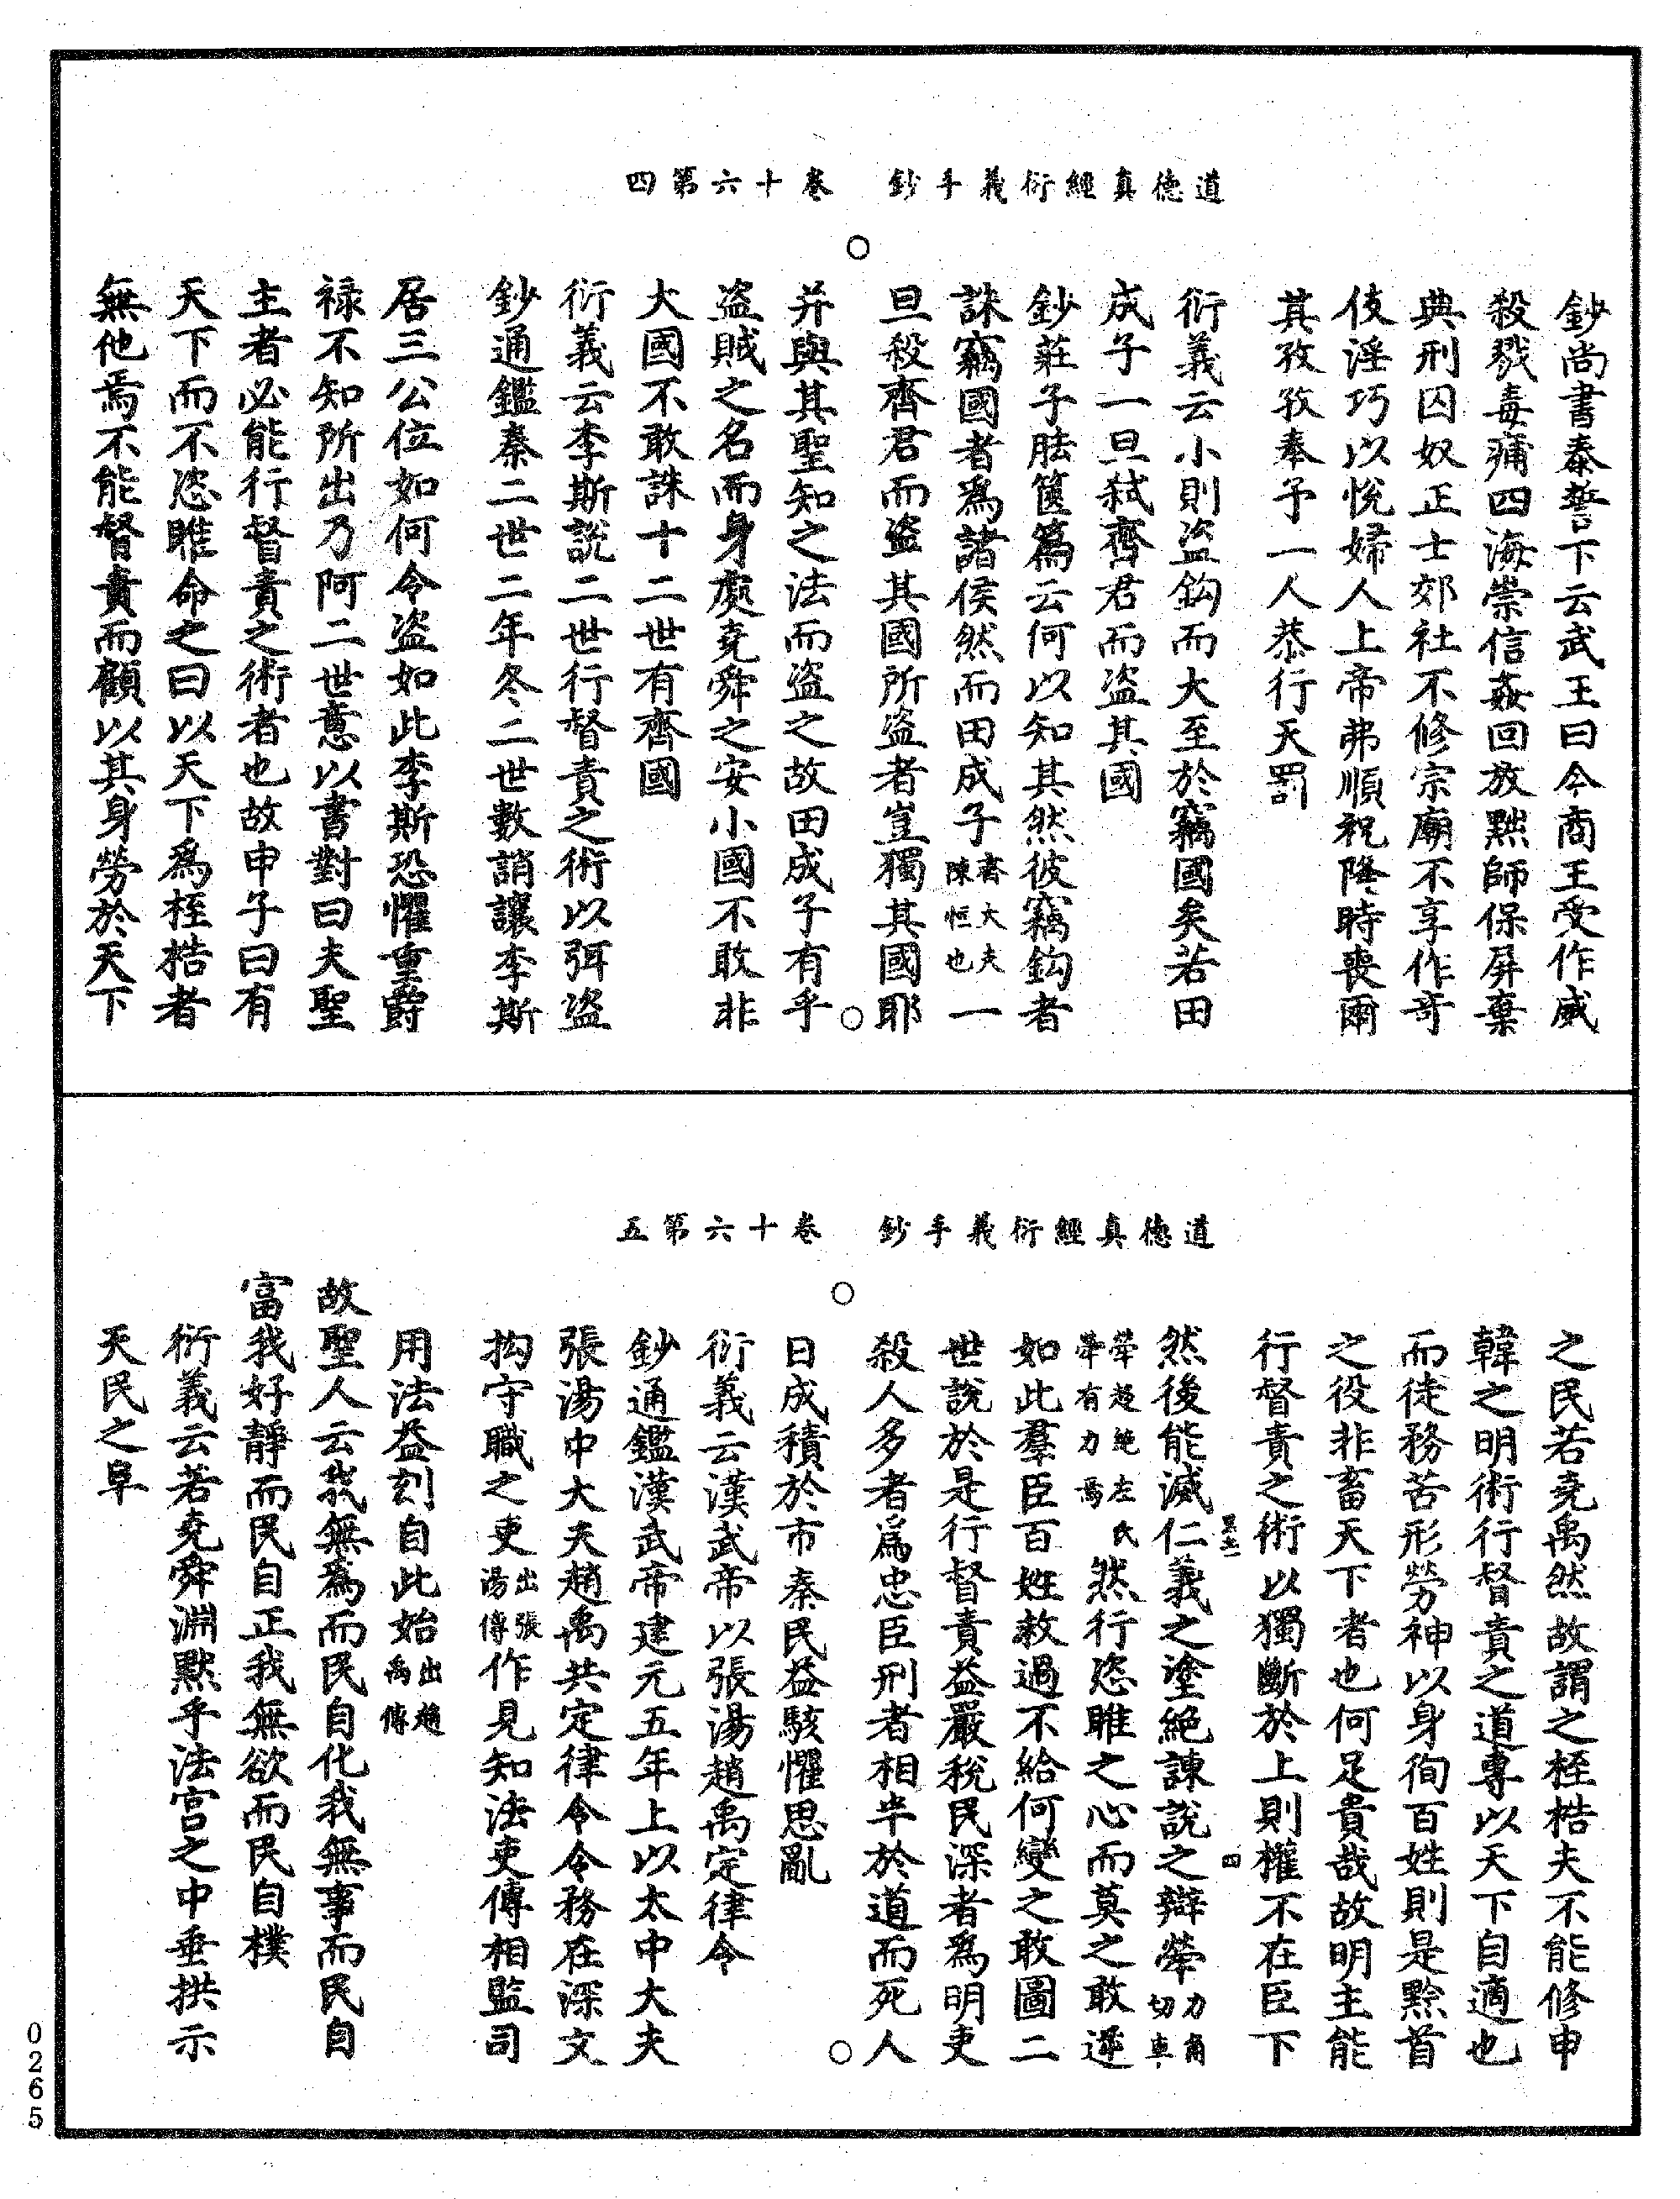 道德真經衍義手鈔　卷十六第四
鈔尚書泰誓下云武王曰今商王受作威
殺戮毒痡四海崇信姦回放黜師保屏棄
典刑囚奴正士郊社不修宗廟不享作奇
伎淫巧以悅婦人上帝弗順祝降時喪爾
其孜孜奉予一人恭行天罰
衍義云小則盜鈎而大至於竊國矣若田
成子一旦弒齊君而盜其國
鈔莊子胠篋篇云何以知其然彼竊鈎者
誅竊國者為諸侯然而田成子齊大夫陳恒也一
旦殺齊君而盜其國所盜者豈獨其國耶
并與其聖知之法而盜之故田成子有乎
盜賊之名而身處堯舜之安小國不敢非
大國不敢誅十二世有齊國
衍義云李斯說二世行督責之術以弭盜
鈔通鑑秦二世二年冬二世數誚讓李斯
居三公位如何令盜如此李斯恐懼重爵
祿不知所出乃阿二世意以書對曰夫聖
主者必能行督責之術者也故申子曰有
天下而不恣睢命之曰以天下為桎梏者
無他焉不能督責而顧以其身勞於天下
道德真經衍義手鈔　卷十六第五
之民若堯禹然故謂之桎梏夫不能修申
韓之明術行督責之道專以天下自適也
而徒務苦形勞神以身徇百姓則是黔首
之役非畜天下者也何足貴哉故明主能
行督責之術以獨斷於上則權不在臣下
然後能滅仁義之塗絕諫說之辯犖力角切車
犖超絕左氏犖有力焉然行恣睢之心而莫之敢逆
如此羣臣百姓救過不給何變之敢圖二
世說於是行督責益嚴稅民深者為明吏
殺人多者為忠臣刑者相半於道而死人
日成積於市秦民益駭懼思亂
衍義云漢武帝以張湯趙禹定律令
鈔通鑑漢武帝建元五年上以太中大夫
張湯中大夫趙禹共定律令令務在深文
拘守職之吏出張湯傳作見知法吏傳相監司
用法益刻自此始出趙禹傳
故聖人云我無為而民自化我無事而民自
富我好靜而民自正我無欲而民自樸
衍義云若堯舜淵默乎法宮之中垂拱示
天民之阜
0265